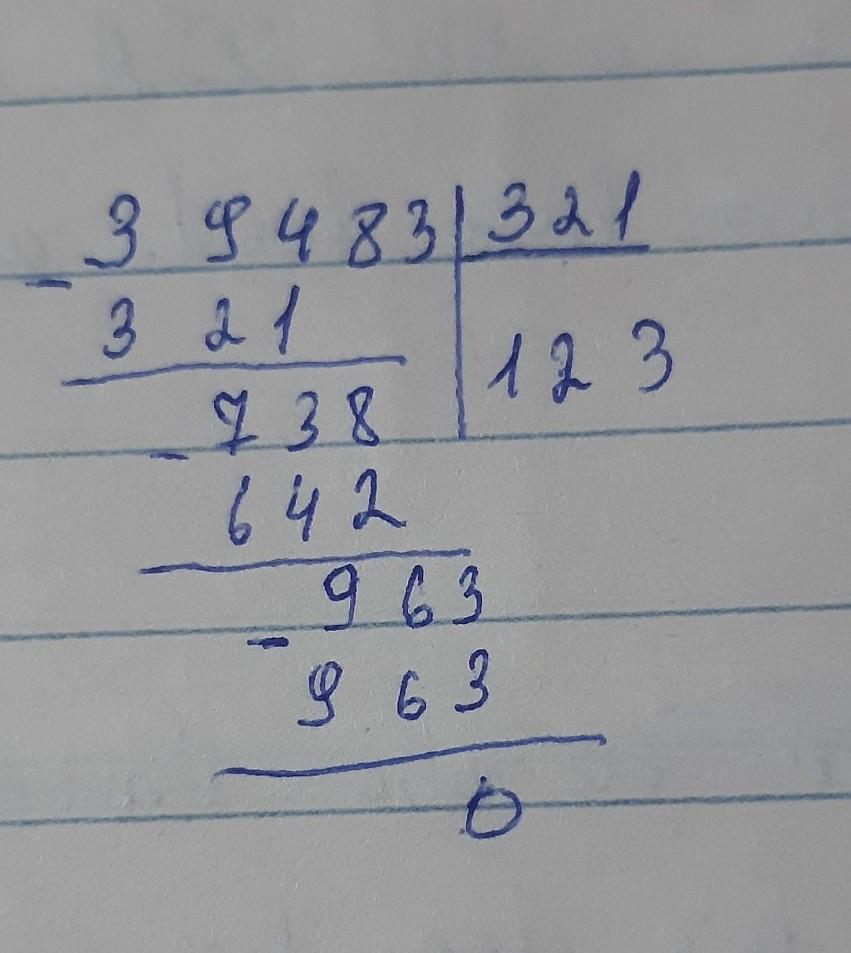 - 39483 | 321
321 | 123
- 738
642
- 963
963
0